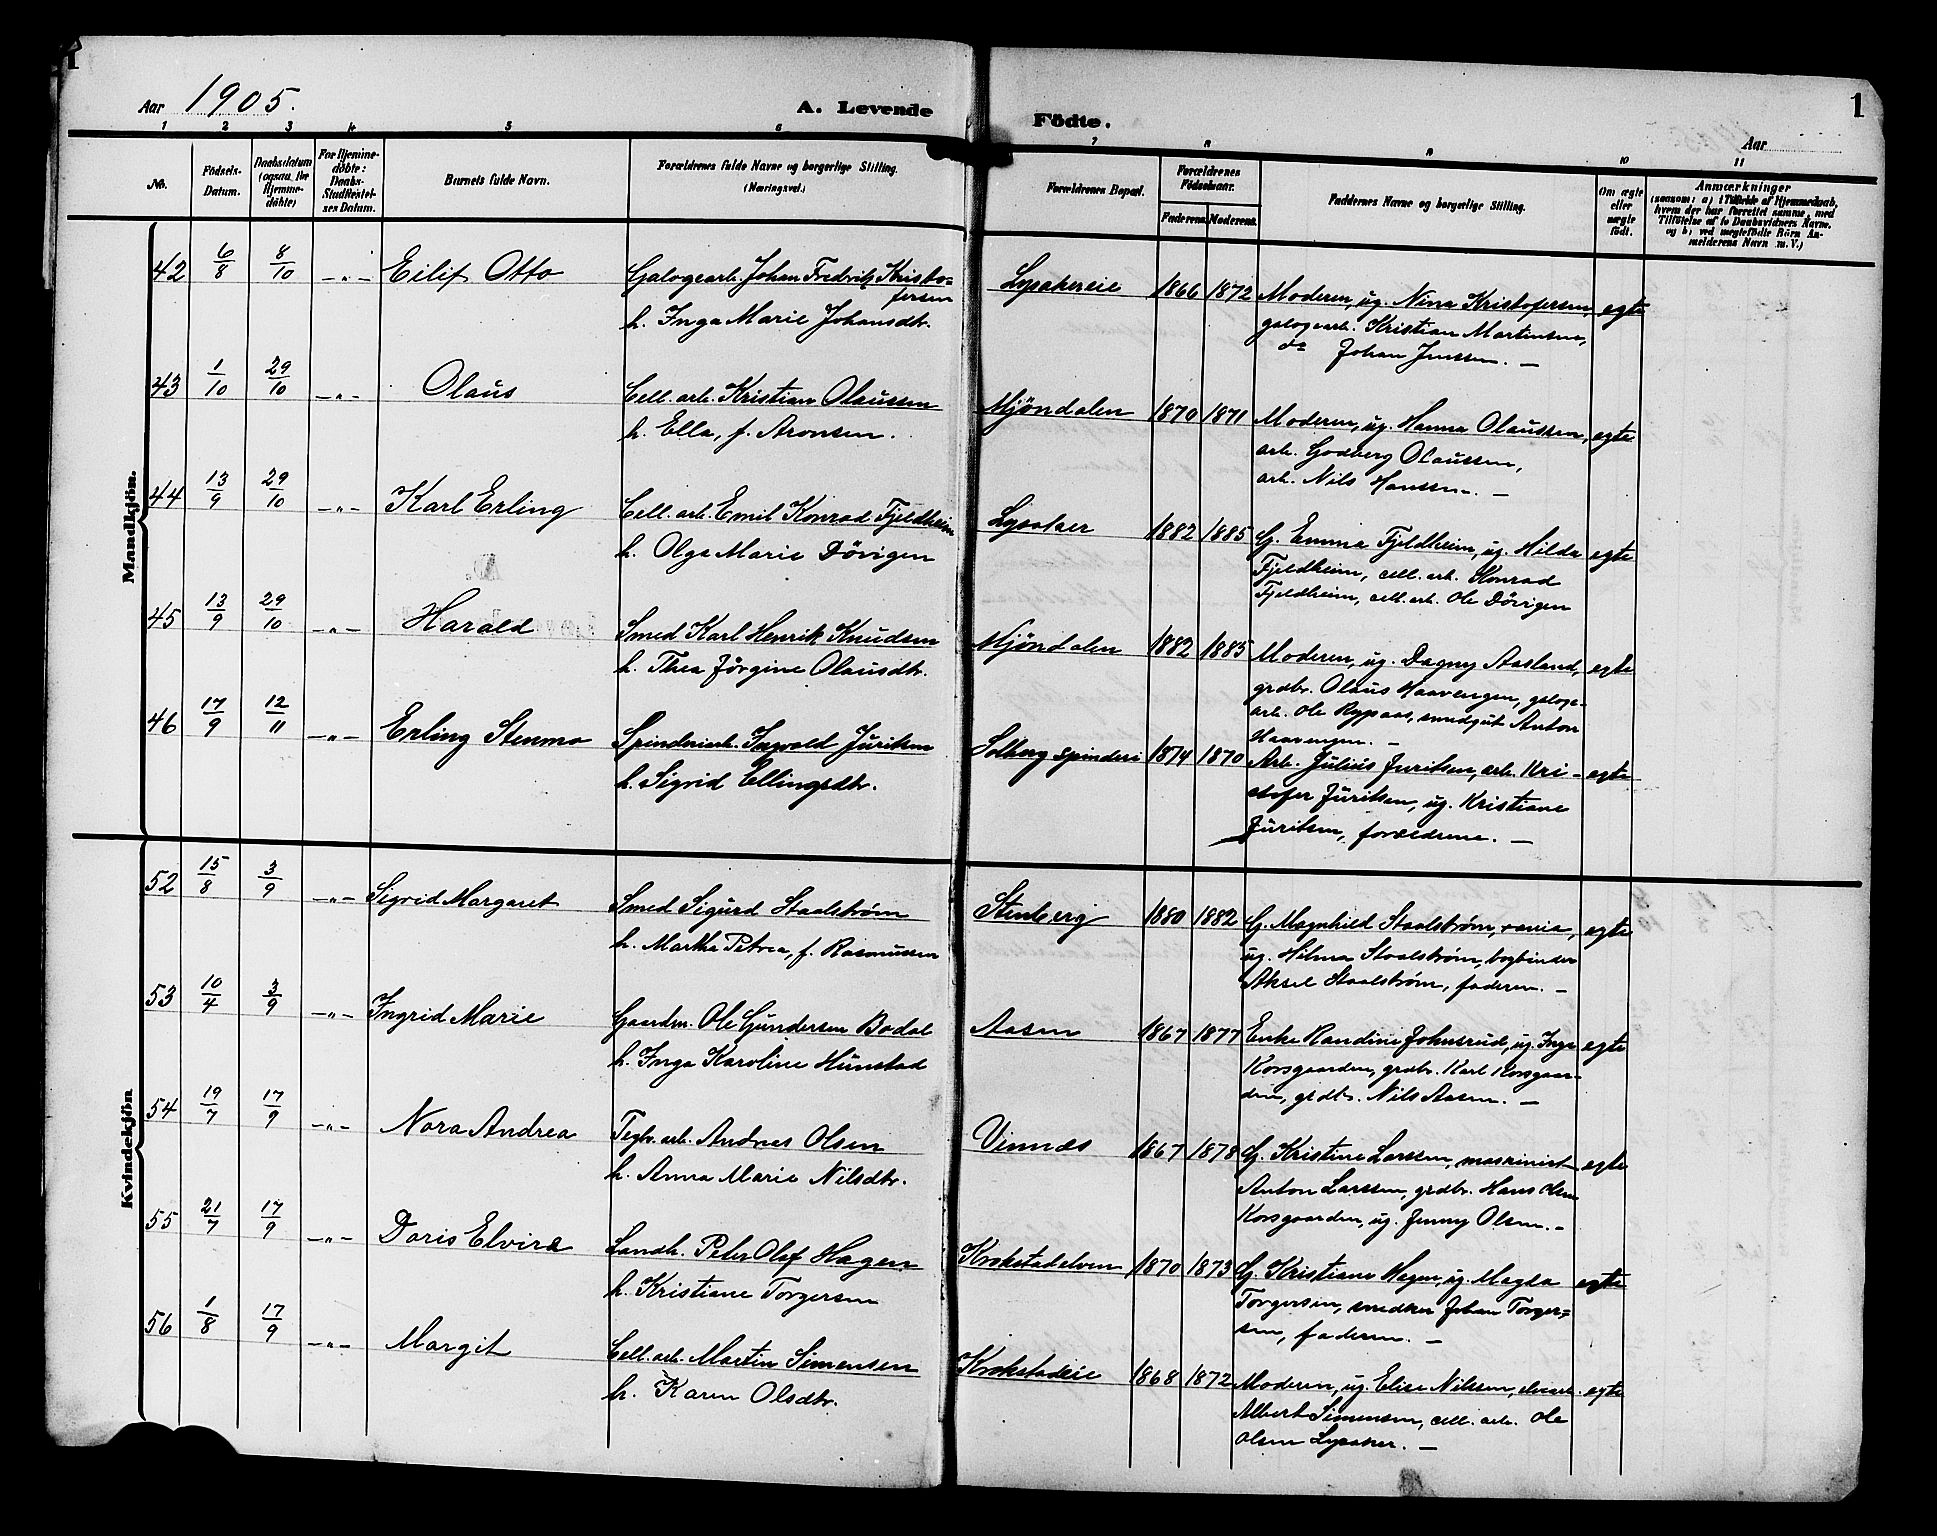 1
Aar 1905.
A. Levende
Födte.
Aar
1
1 2 3 4 5 6 7 8 9 10 11
No.
Födsels-
Datum.
Daabsdatum
(ogsaa for
Hjemme-
döbte)
For Hjemme-
döbte:
Daabs-
Stadfæstel-
ses Datum.
Barnets fulde Navn.
Forældrenes fulde Navne og borgerlige Stilling.
(Næringsvei.)
Forældrenes Bopæl.
Forældrenes
Födselsaar.
Faderens. Moderens.
Faddernes Navne og borgerlige Stilling.
Om ægte
eller
uægte
födt.
Anmærkninger
(saasom: a) i Tilfælde af Hjemmedaab,
hvem der har forrettet samme, med
Tilföielse af to Daabsvidners Navne.
og b) ved uægtefödte Börn An-
melderens Navn m. V.)
Mandkjön.
42 6/8 8/10 -„- Eilif Otto
Galogearb. Johan Fredrik Kristo=
fersen
h. Inga Marie Johansdtr.
Lysakereie 1866 1872 Moderen, ug. Nina Kristofersen, egte
galogearb. Kristian Martinsen,
do Johan Jenssen. —
43 1/10 29/10 -„- Olaus
Cell. arb. Kristian Olaussen
h. Ella, f. Aronsen.
Mjöndalen 1870 1871 Moderen, ug. Hanna Olaussen, egte
arb. Godberg Olaussen,
arb. Nils Hanssen. —
44 13/9 29/10 -„- Karl Erling
Cell. arb. Emil Konrad Fjeldheim
h. Olga Marie Dövigen
Lysaker 1882 1885 G. Emma Fjeldheim, ug. Hilda egte
Fjeldheim, cell. arb. Konrad
Fjeldheim, cell. arb. Ole Dövigen
45 13/9 29/10 -„- Harald
Smed Karl Henrik Knudsen
h. Thea Jørgine Olausdtr.
Mjöndalen 1882 1885 Moderen, ug. Dagny Aasland, egte
grdbr. Olaus Haavengen, galoge-
arb. Ole Rypaas, smedgut Anton
Haavengen. —
46 17/9 12/11 -„- Erling Stenmo
Spinderiarb. Ingvald Juriksen
h. Sigrid Ellingsdtr.
Solberg spinderi 1874 1870 Arb. Julius Juriksen, arb. Kri- egte
stofer Juriksen, ug. Kristiane
Juriksen, forældrene. —
Kvindekjön
52 15/8 3/9 -„- Sigrid Margaret
Smed Sigurd Staalstrøm
h. Martha Petrea, f. Rasmussen
Stenberg 1880 1882 G. Magnhild Staalstrøm, egte
ug. Hilma Staalstrøm, bogbinder
Aksel Staalstrøm, faderen. —
53 10/4 3/9 -„- Ingrid Marie
Gaardm. Ole Gundersen Bodal
h. Inga Karoline Hunstad
Aasen 1867 1877 Enke Randine Johnsrud, ug. Inga egte
Korsgaarden, grdbr. Karl Korsgaar-
den, grdbr. Nils Aasen. —
54 19/7 17/9 -„- Nora Andrea
Teglv. arb. Andres Olsen
h. Anna Marie Nilsdtr.
Vinnæs 1867 1878 G. Kristine Larssen, maskinist egte
Anton Larssen, grdbr. Hans Olsen
Korsgaarden, ug. Jenny Olsen. —
55 21/7 17/9 -„- Doris Elvira
Landh. Peter Olaf Hagen
h. Kristiane Torgersen
Krokstadelven 1870 1873 G. Kristiane Hagen, ug. Magda egte
Torgersen, snedker Johan Torger=
sen, faderen. —
56 1/8 17/9 -„- Margit
Cell. arb. Martin Simensen
h. Karen Olsdtr.
Krokstadeie 1868 1872 Moderen, ug. Elise Nilssen, egte
Albert Simensen, cell. arb. Ole
Olsen Lysaker. —